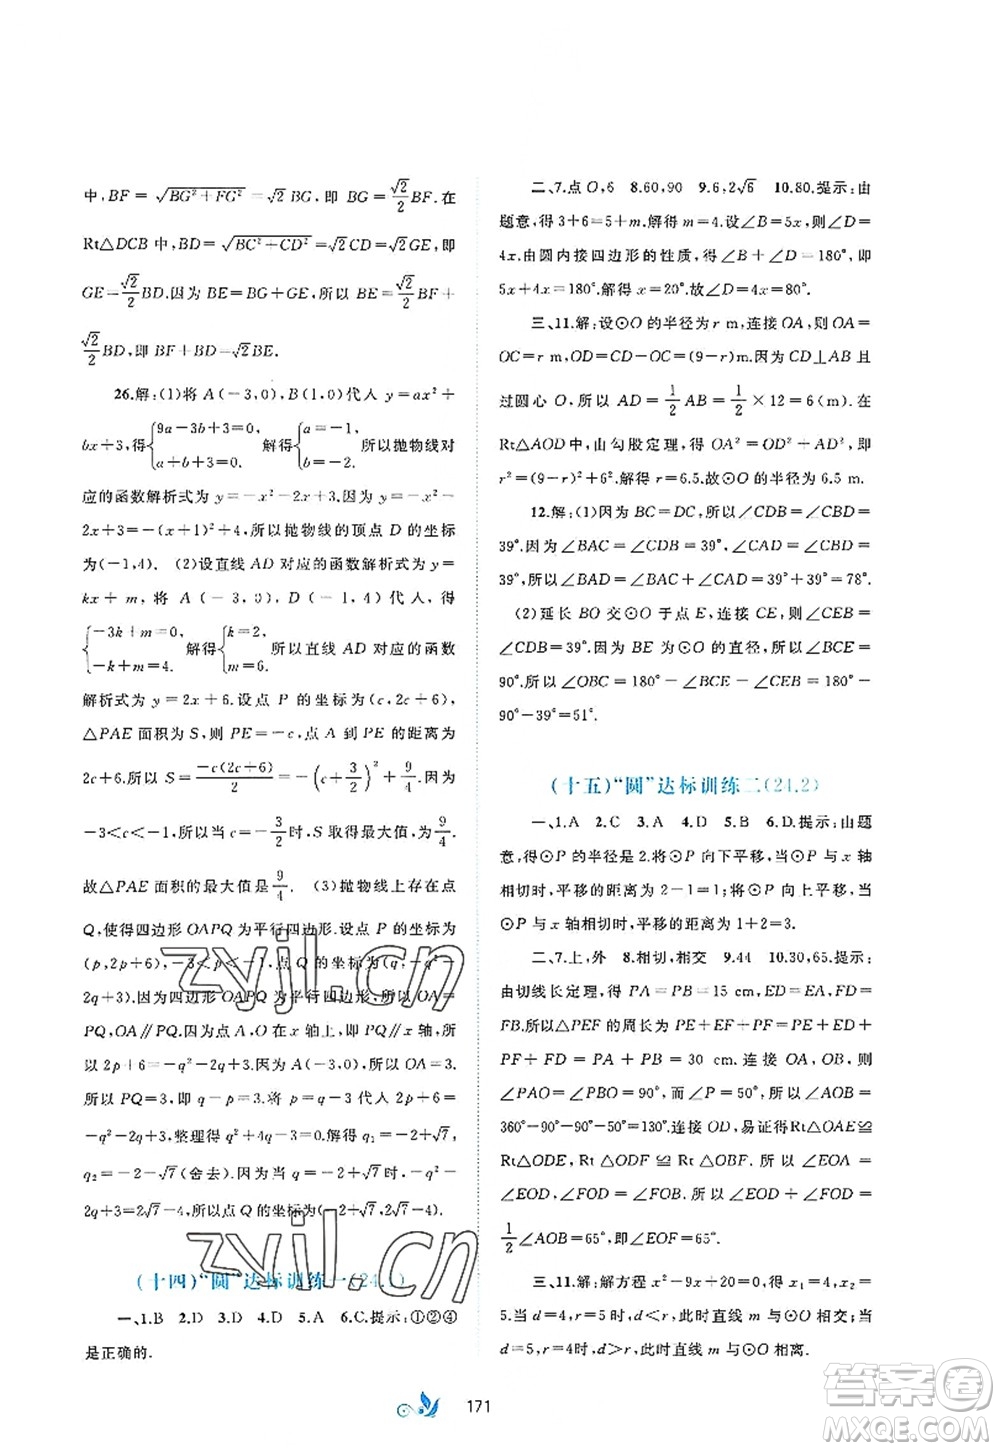 中,BF=√(BG²+FG²)=√2BG,即 BG=√2/2 BF.在
Rt△DCB 中,BD=√(BC²+CD²)=√2CD=√2GE,即
GE=√2/2 BD.因为 BE=BG+GE,所以 BE=√2/2 BF+
√2/2 BD,即 BF+BD=√2BE.
26.解:(1)将 A(-3,0),B(1,0)代人 y=ax²+
bx+3,得{9a-3b+3=0, a+b+3=0. 解得{a=-1, b=-2. 所以抛物线对
应的函数解析式为 y=-x²-2x+3.因为 y=-x²-
2x+3=-(x+1)²+4,所以抛物线的顶点 D 的坐标
为(-1,4). (2)设直线 AD 对应的函数解析式为 y=
kx+m,将 A(-3,0),D(-1,4)代人,得
{-3k+m=0, -k+m=4. 解得{k=2, m=6. 所以直线 AD 对应的函数
解析式为 y=2x+6.设点 P 的坐标为(c,2c+6),
△PAE 面积为 S,则 PE=-c,点 A 到 PE 的距离为
2c+6.所以 S=-c(2c+6)/2=-(c+3/2)²+9/4.因为
-3<c<-1,所以当 c=-3/2时,S 取得最大值,为9/4.
故△PAE 面积的最大值是9/4. (3)抛物线上存在点
Q,使得四边形 OAPQ 为平行四边形.设点 P 的坐标为
(p,2p+6),-3<p<-1,点 Q 的坐标为(q,-q²-
2q+3).因为四边形 OAPQ 为平行四边形,所以 OA=
PQ,OA∥PQ.因为点 A,O 在 x 轴上,所以 PQ∥x 轴,所
以 2p+6=-q²-2q+3.因为 A(-3,0),所以 OA=3.
所以 PQ=3,即 q-p=3.因此,2(q-3)+6=
-q²-2q+3,整理得 q²+4q-3=0.解得 q₁=-2+√7,
q₂=-2-√7(舍去).因为当 q=-2+√7时,-q²-
2q+3=2√7-4,所以点 Q 的坐标为(-2+√7,2√7-4).
(十四)“圆”达标训练一(24.1)
一、1.B 2.D 3.D 4.D 5.A 6.C.提示:①②④
是正确的.
二、7.点 O,6 8.60,90 9.6,2√6 10.80.提示:由
题意,得 3+6=5+m.解得 m=4.设∠B=5x,则∠D=
4x.由圆内接四边形的性质,得∠B+∠D=180°,即
5x+4x=180°.解得 x=20°.故∠D=4x=80°.
三、11.解:设⊙O 的半径为 r m,连接 OA,则 OA=
OC=r m,OD=CD-OC=(9-r)m.因为 CD⊥AB 且
过圆心 O,所以 AD=1/2 AB=1/2×12=6(m).在
Rt△AOD 中,由勾股定理,得 OA²=OD²+AD²,即
r²=(9-r)²+6².解得 r=6.5.故⊙O 的半径为 6.5 m.
12.解:(1)因为 BC=DC,所以∠CDB=∠CBD=
39°.因为∠BAC=∠CDB=39°,∠CAD=∠CBD=
39°,所以∠BAD=∠BAC+∠CAD=39°+39°=78°.
(2)延长 BO 交⊙O 于点 E,连接 CE,则∠CEB=
∠CDB=39°.因为 BE 为⊙O 的直径,所以∠BCE=
90°.所以∠OBC=180°-∠BCE-∠CEB=180°-
90°-39°=51°.
(十五)“圆”达标训练二(24.2)
一、1.A 2.C 3.A 4.D 5.B 6.D.提示:由题
意,得⊙P 的半径是 2.将⊙P 向下平移,当⊙P 与 x 轴
相切时,平移的距离为 2-1=1;将⊙P 向上平移,当
⊙P 与 x 轴相切时,平移的距离为 1+2=3.
二、7.上,外 8.相切,相交 9.44 10.30,65.提示:
由切线长定理,得 PA=PB=15 cm,ED=EA,FD=
FB.所以△PEF 的周长为 PE+EF+PF=PE+ED+
PF+FD=PA+PB=30 cm.连接 OA,OB,则
∠PAO=∠PBO=90°,而∠P=50°,所以∠AOB=
360°-90°-90°-50°=130°.连接 OD,易证得Rt△OAE≌
Rt△ODE,Rt△ODF≌Rt△OBF.所以∠EOA=
∠EOD,∠FOD=∠FOB.所以∠EOD+∠FOD=
1/2∠AOB=65°,即∠EOF=65°.
三、11.解:解方程 x²-9x+20=0,得 x₁=4,x₂=
5.当 d=4,r=5时,d<r,此时直线 m 与⊙O 相交;当
d=5,r=4时,d>r,此时直线 m 与⊙O 相离.
171
zyjl.cn
zyjl.cn
答案圈
MXQE.COM